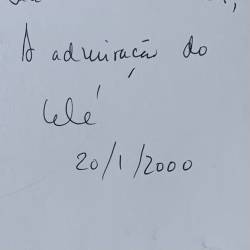 A admiração do
Lelé
20/1/2000